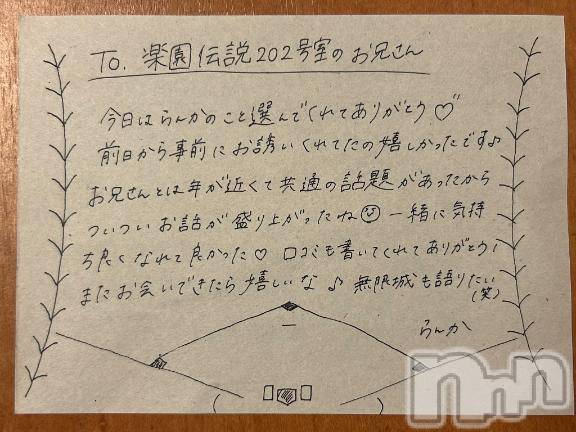 To. 楽園伝説202号室のお兄さん
今日はらんかのこと選んでくれてありがとう♡
前日から事前にお誘いくれてたの嬉しかったです♪
お兄さんとは年が近くて共通の話題があったから
ついついお話が盛り上がったね☺ 一緒に気持
ち良くなれて良かった♡ 口コミも書いてくれてありがとう!
またお会いできたら嬉しいな♪ 無限城も語りたい
(笑)
らんか
nnn